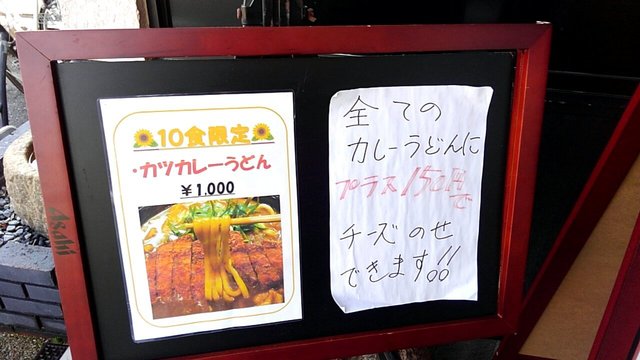 10食限定
・カツカレーうどん
￥1,000
全ての
カレーうどんに
プラス150円
で
チーズのせ
できます!!
Asahi